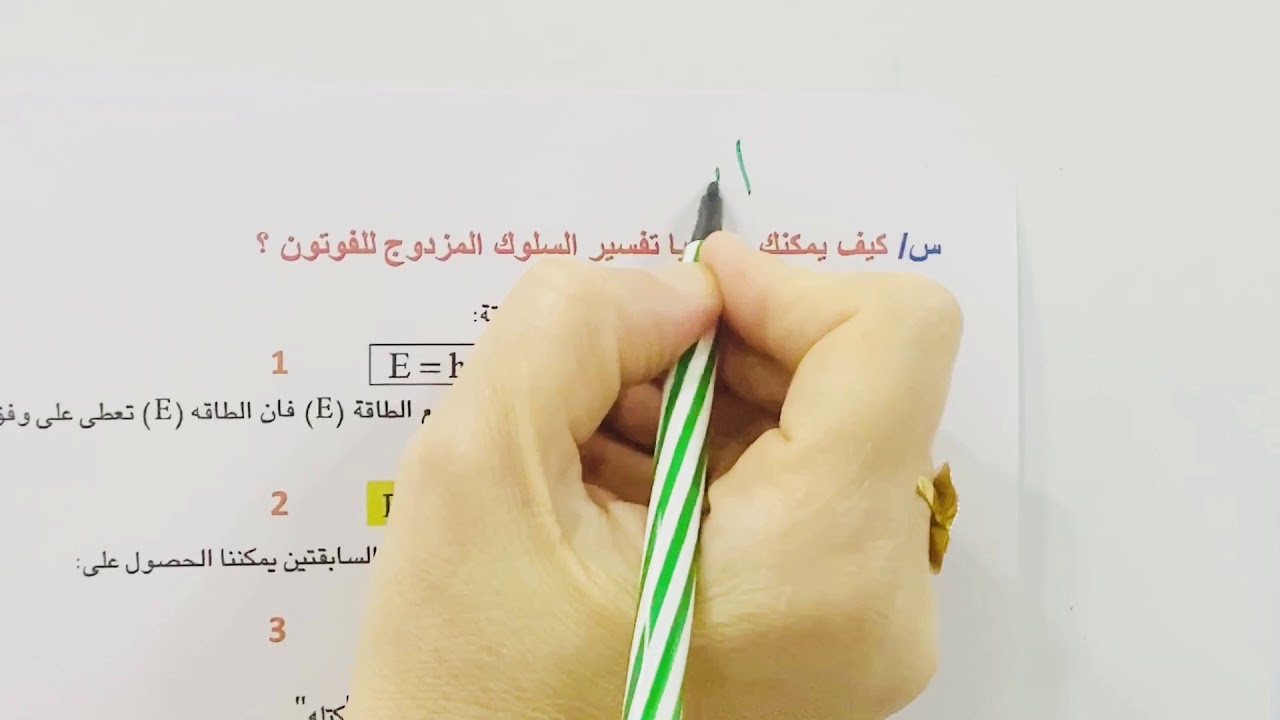 س/ كيف يمكنك تفسير السلوك المزدوج للفوتون ؟
1 E = h
الطاقة (E) فان الطاقه (E) تعطى على وفق
2
السابقتين يمكننا الحصول على:
3
كتله"